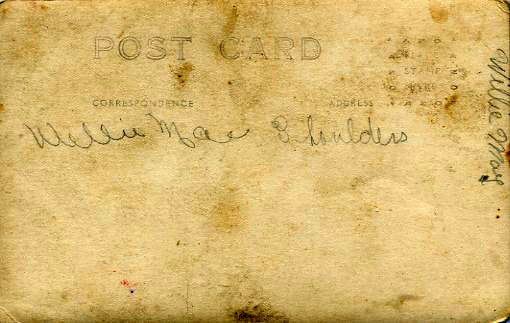 POST CARD
CORRESPONDENCE ADDRESS
Willie Mae Shoulders
Willie May